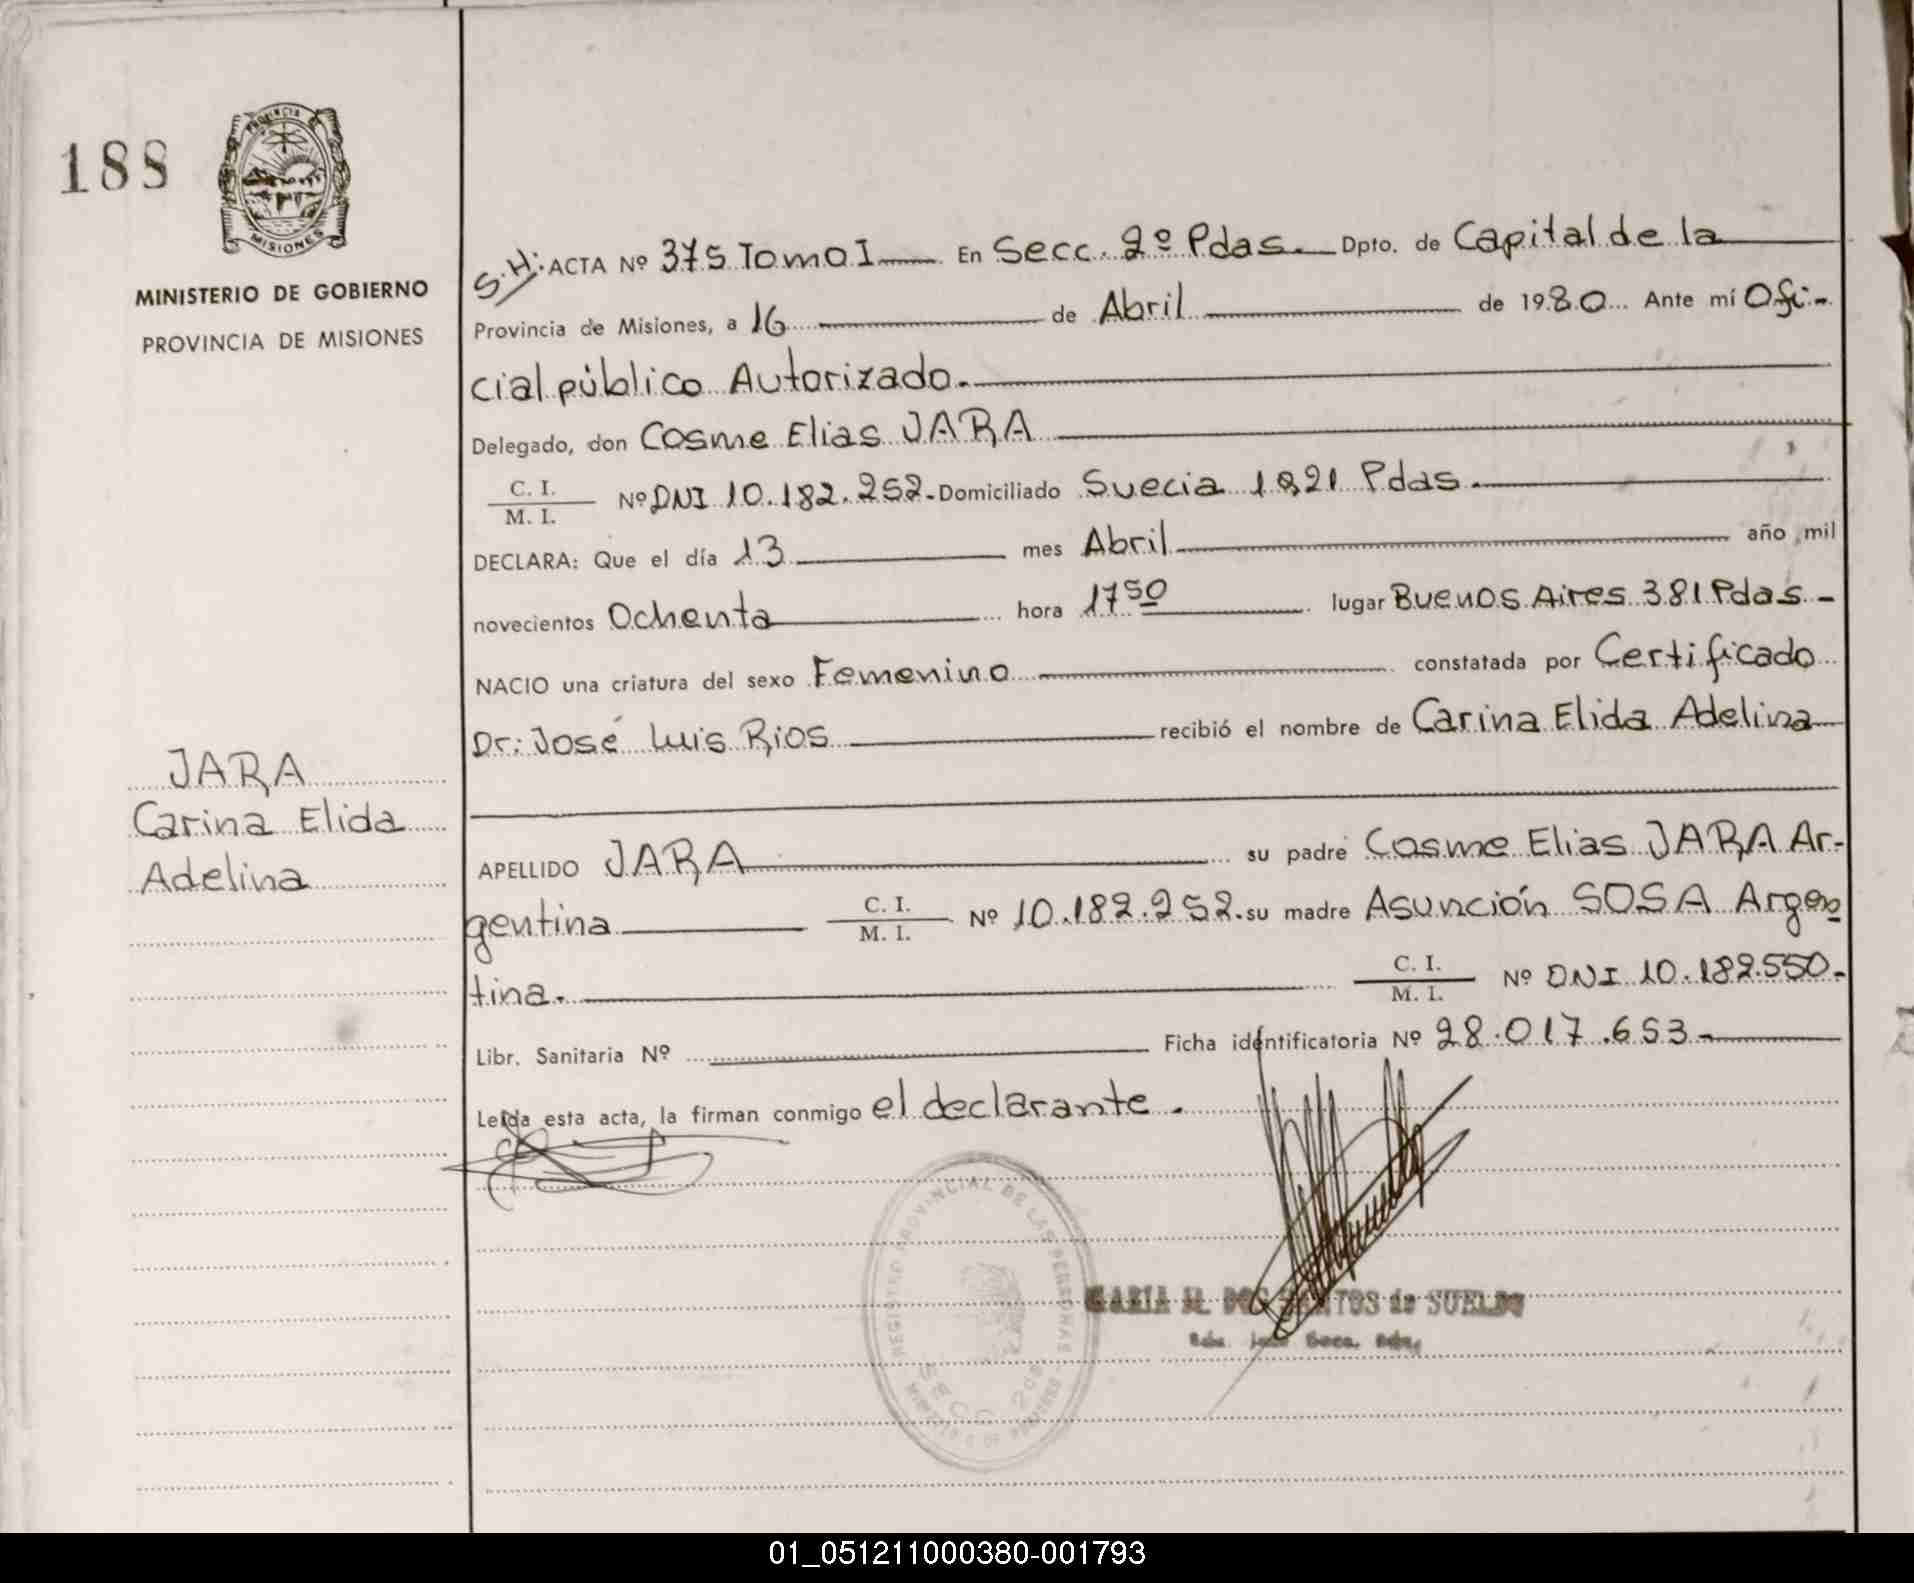 188
PROVINCIA DE
MISIONES
MINISTERIO DE GOBIERNO
PROVINCIA DE MISIONES
JARA
Carina Elida
Adelina
S.H: ACTA Nº 375 Tomo I En Secc. 2º Pdas. Dpto. de Capital de la
Provincia de Misiones, a 16 de Abril de 1980 Ante mí Ofi-
cial público Autorizado.
Delegado, don Cosme Elias JARA
C. I.
M. I. Nº DNI 10.182.252. Domiciliado Suecia 1821 Pdas.
DECLARA: Que el día 13 mes Abril año mil
novecientos Ochenta hora 17 50 lugar Buenos Aires 381 Pdas.
NACIO una criatura del sexo Femenino constatada por Certificado
Dr: José Luis Rios recibió el nombre de Carina Elida Adelina
APELLIDO JARA su padre Cosme Elias JARA Ar-
gentina C. I.
M. I. Nº 10.182.252. su madre Asunción SOSA Argen
tina. C. I.
M. I. Nº DNI 10.182.550.
Libr. Sanitaria Nº Ficha identificatoria Nº 28.017.653.
Leída esta acta, la firman conmigo el declarante.
REGISTRO PROVINCIAL DE LAS PERSONAS
SECC. 2da
MARIA M. DOS SANTOS de SUELDO
01_051211000380-001793